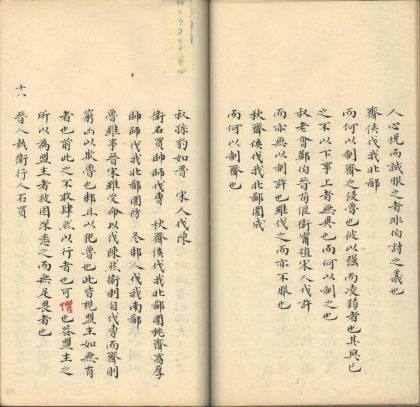 人心悅而誠服之者非伯討之義也
齊侯伐我北鄙
而何以制齊之侵魯也彼以强而凌弱者也其與己
之不以下事上者無異也而何以制之也
叔老會鄭伯晉荀偃衛甯殖宋人伐許
而亦無以制許也雖伐之而亦不服也
秋齊侯伐我北鄙圍成
而何以制齊也
叔孫豹如晉 宋人伐陳
衛石買帥師伐曹 秋齊侯伐我北鄙圍桃齊高厚
帥師伐我北鄙圍防 冬邾人伐我南鄙
魯雖事晉宋雖受命以伐陳然衛則自伐曹而齊則
以欺魯也邾且以犯魯也此皆視盟主如無有
者也前此之不敢肆然以行者也可懼也蓋盟主之
所以為盟主者彼固深悉之而無足畏者也
十八
晉人執衛行人石買